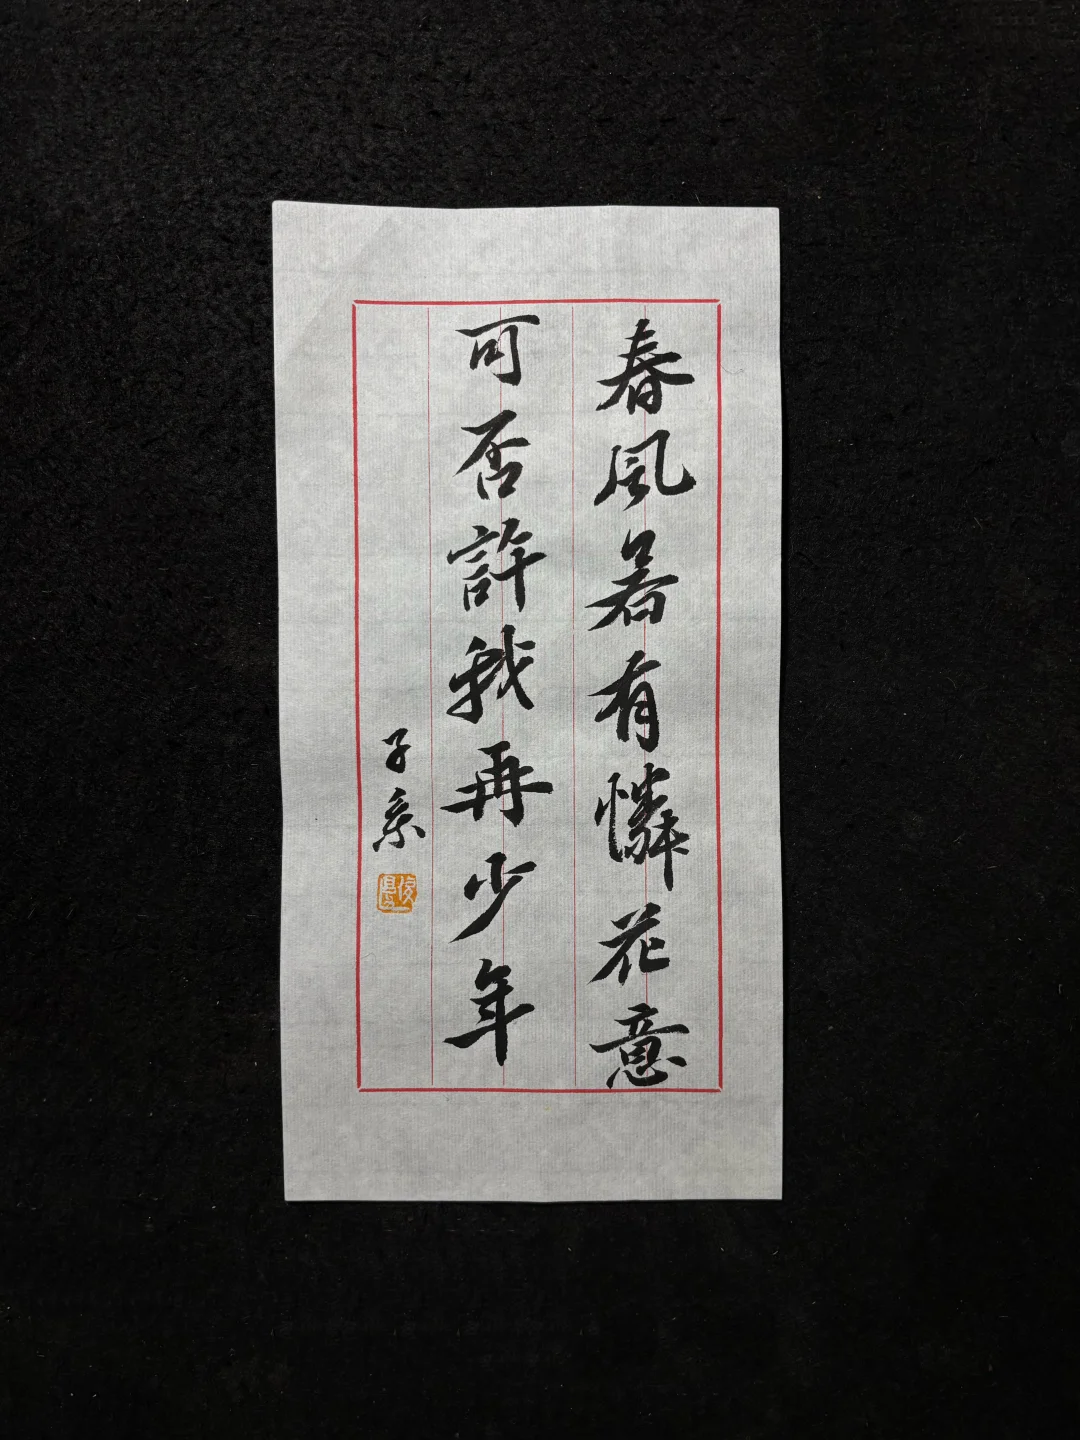 春風若有憐花意
可否許我再少年
子系